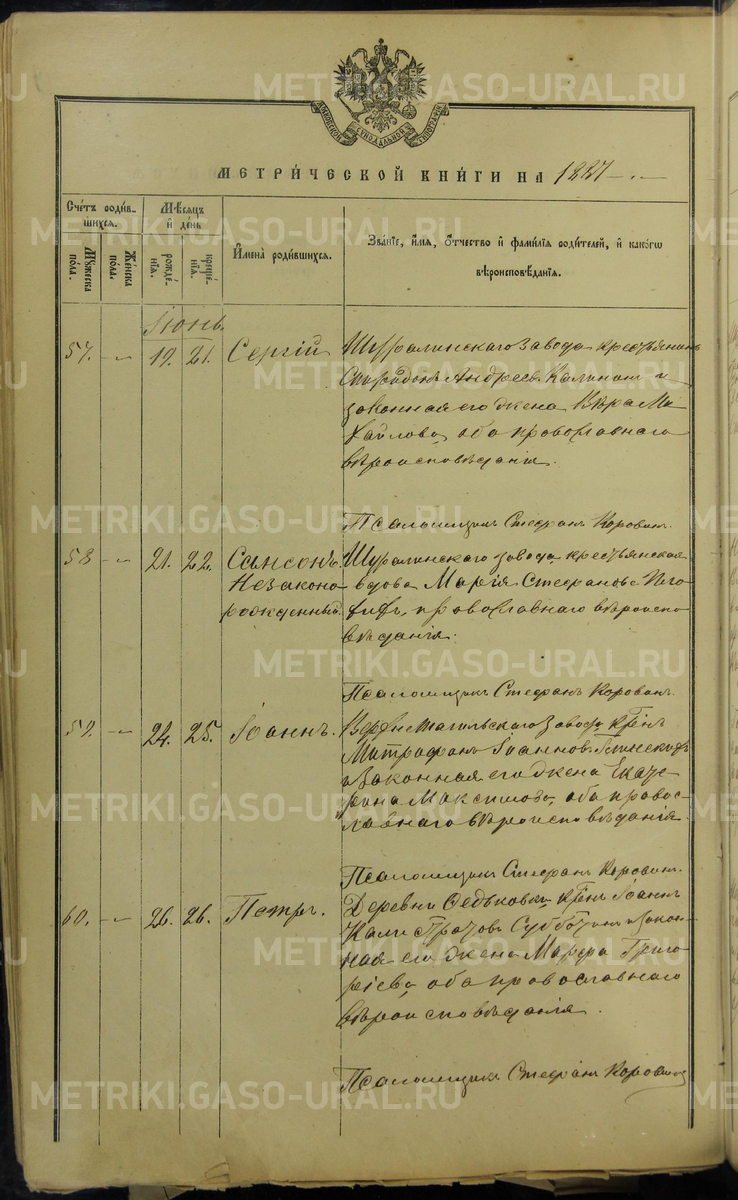 МОСКОВСКОЙ СИНОДАЛЬНОЙ ТИПОГРАФІИ
МЕТРИ́ЧЕСКОЙ КНИ́ГИ НА 1887
Сче́тъ роди́в-
шихся.
Му́жеска
по́ла.
Же́нска
по́ла.
Мѣ́сяцъ
и҆ де́нь
рожде́-
нїѧ.
креще́-
нїѧ.
И҆мена̀ роди́вшихсѧ.
Зва́нїе, и҆́мѧ, ѻ҆́тчество и҆ фами́лїѧ роди́телей, и҆ како́гѡ
вѣроисповѣ́данїѧ.
Іюнь.
57. -„- 19. 21. Сергій
Шуралинскаго завода крестьянинъ
Спиридонъ Андреевъ Калининъ и
законная его жена Вѣра Ми
хайлова, оба православнаго
вѣроисповѣданія.
Псаломщикъ Стефанъ Коровинъ.
58 -„- 21. 22. Сансонъ.
Незаконо
рожденный.
Шуралинскаго завода, крестьянская
вдова Марія Стефанова
православнаго вѣроиспо
вѣданія.
Псаломщикъ Стефанъ Коровинъ.
59. -„- 24. 25. Іоаннъ.
Верхнетагильскаго завода, кр̃нъ
Митрофанъ Іоанновъ
и законная его жена Екате
рина Максимова, оба правос
лавнаго вѣроисповѣданія.
Псаломщикъ Стефанъ Коровинъ.
60. -„- 26. 26. Петръ.
Деревни Федьковки кр̃нъ Іоаннъ
Калистратовъ Субботинъ и закон-
ная его жена Марфа Григо
рьева, оба православнаго
вѣроисповѣданія.
Псаломщикъ Стефанъ Коровинъ
METRIKI.GASO-URAL.RU